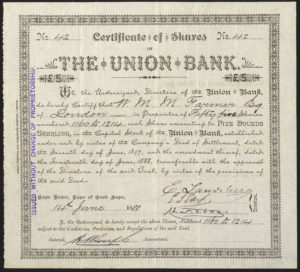 No. 442 Certificate of Shares No. 442
IN
THE UNION BANK.
£5. £5.
We, the Undersigned Directors of the Union Bank,
do hereby Certify that W. M. M. Farmer Esq
of London is Proprietor of Fifty five Shares
Nos. 1160 to 1214, each Share amounting to FIVE POUNDS
STERLING, in the Capital Stock of the Union Bank, established
under and by virtue of the Company's Deed of Settlement, dated
the day of June, 1847, and the amendment thereof, dated
the Fourteenth day of June, 1888, transferable with the approval
of the Directors of the said Bank, and by virtue of the provisions
of the said Deed.
Cape Town, Cape of Good Hope,
14th June 1888
I, the Undersigned, do hereby accept the above Shares, Numbered 1160 to 1214
subject to the Conditions, Provisions, and Regulations of the said Deed.
ISSUED WITHOUT CHANGE OF PROPRIETORSHIP